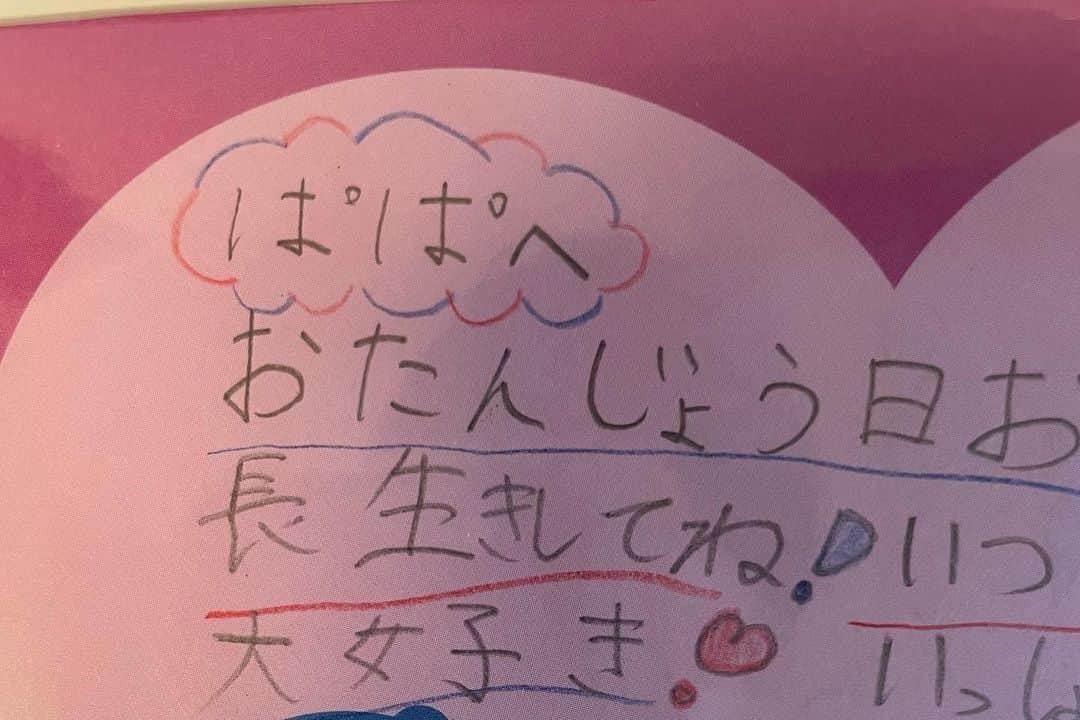 ぱぱへ
おたんじょう日お
長生きしてね!いつ
大好き!いっし